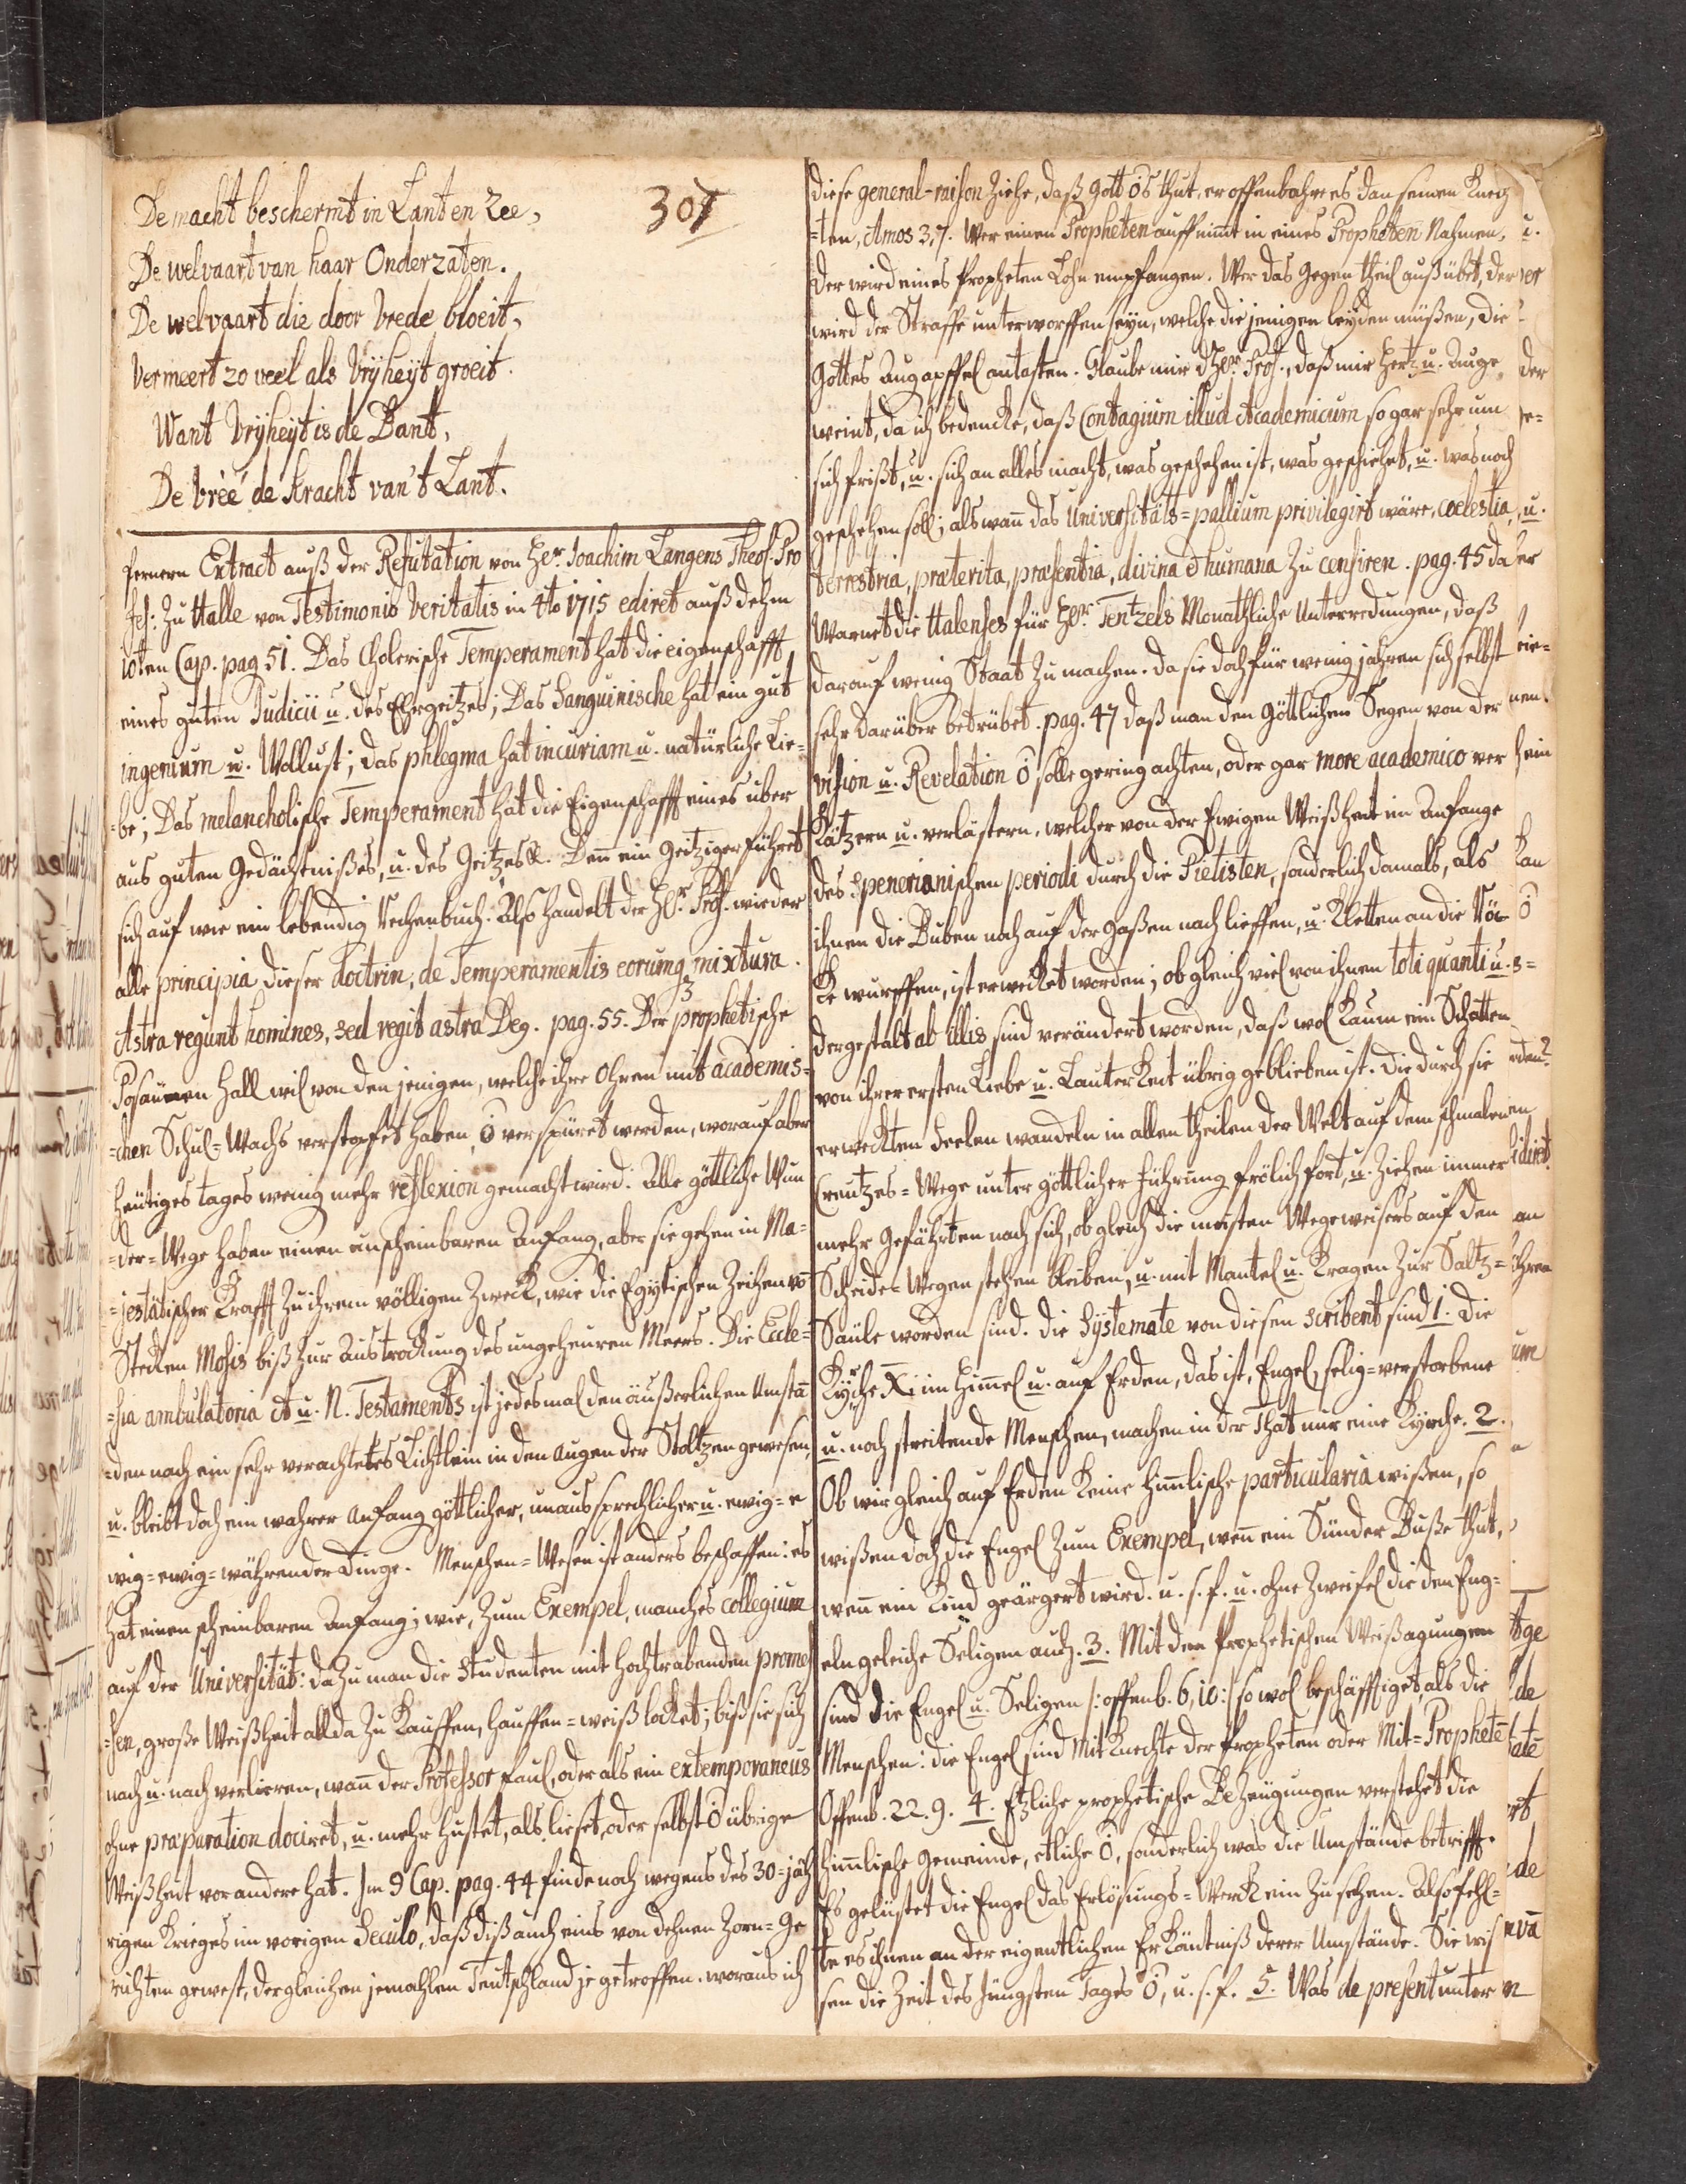 307
De macht beschermt in Lant en Zee,
De welvaart van haar Onderzaten.
De welvaart die door vrede bloeit,
Vermeert zo veel als Vryheyt groeit.
Want Vryheyt is de Bant,
De vreé de Kracht van't Lant.
fernern Extract auß der Refutation von Her. Joachim Langens Theol. Pro
fes: zu Halle von Testimonio Veritatis in 4to 1715 ediret auß dehm
10ten Cap. pag. 51. Das Cholerische Temperament hat die eigenschafft
eines guten Judicii u. des Ehrgeitzes; Das Sanguinische hat ein gut
ingenium u. Wollust; das phlegma hat incuriam u. natürliche Lie-
=be; Das melancholische Temperament hat die Eigenschafft eines über
aus guten Gedächtnißes, u. des Geitzes &. Deñ ein Geitziger führet
sich auf wie ein lebendig Rechenbuch. Also handelt der Hr. Prof. wieder
alle principia dieser doctrin, de Temperamentis eorumq mixtura.
Astra regunt homines, sed regit astra Deg. pag. 55. Der prophetische
Posaunen Hall wil von den jenigen, welche ihre Ohren mit academis-
=chen Schul=Wachs verstopfet haben, ō verspüret werden, worauf aber
heutiges tages wenig mehr reflexion gemacht wird. Alle göttliche Wun
=der=Wege haben einen unscheinbaren Anfang, aber sie gehen in Ma=
=jestätischer Krafft zu ihrem völligen Zweck, wie die Egytischen Zeichen vō
Stecken Mosis biß zur Austrockung des ungeheuren Meers. Die Eccle=
=sia ambulatoria A u. N. Testaments ist jedesmal den äußerlichen Umstā
=den nach ein sehr verachtetes Lichtlein in den Augen der Stoltzen gewesen,
u. bleibt doch ein wahrer Anfang göttlicher, unaussprechlicher u. ewig=e
wig=ewig=währender Dinge. Menschen=Wesen ist anders beschaffen: es
hat einen scheinbaren Anfang; wie, zum Exempel, manches collegium
auf der Universität: dazu man die Studenten mit hochtrabenden promes
=sen, große Weißheit allda zu kauffen, hauffen=weiß locket; biß sie sich
nach u. nach verlieren, wañ der Professor faul, oder als ein extemporaneus
ohne præparation dociret, u. mehr hustet, als lieset, oder selbst ō übrige
Weißheit vor andere hat. Im 9 Cap. pag. 44 finde noch wegens des 30=jäh
rigen Krieges im vorigen Seculo, daß diß auch eins von dehnen Zorn=Ge
richten gewest, dergleichen jemahlen Teutschland je getroffen. woraus ich
diese general-raison ziehe, daß Gott ōs thut, er offenbahre es dan seinen Knech
=ten, Amos 3,7. Wer einen Propheten auffnim̄t in eines Propheten Nahmen,
der wird eines Propheten Lohn empfangen. Wer das Gegentheil außübet, der
wird der Straffe unterworffen seyn, welche die jenigen leyden müßen, die
Gottes Augapffel antasten. Glaube mir Hr. Prof., daß mir Hertz u. Auge
weint, da ich bedencke, daß Contagium illud Academicum so gar sehr um
sich frißt, u. sich an alles macht, was geschehen ist, was geschiehet, u. was noch
geschehen soll; als wañ das Universitäts=pallium privilegirt wäre, coelestia,
terrestria, præterita, præsentia, divina & humana zu censiren. pag. 45 da
Warnet die Halenses für Hr. Tentzels Monathliche Unterredungen, daß
darauf wenig Staat zu machen. da sie doch für wenig jahren sich selbst
sehr darüber betrübet. pag. 47 daß man den Göttlichen Segen von der
Vision u. Revelation ō solle gering achten, oder gar more academico ver
Kätzern u. verlästern, welcher von der Ewigen Weißheit im Anfange
des Spenerianischen periodi durch die Pietisten, sonderlich damals, als
ihnen die Buben noch auf der Gaßen nach lieffen, u. Kletten an die Röc
ke wurffen, ist erwecket worden; ob gleich viel von ihnen toti quanti u.
dergestalt ab illis sind verändert worden, daß wol kaum ein Schatten
von ihrer ersten Liebe u. Lauterkeit übrig geblieben ist. Die durch sie
erweckten Seelen wandeln in allen theilen der Welt auf dem schmalen
Creutzes=Wege unter göttlicher Führung frölich fort, u. ziehen immer
mehr Gefährten nach sich, ob gleich die meisten Wegeweisers auf den
Scheide=Wegen stehen bleiben, u. mit Mantel u. Kragen zur Saltz=
Säule worden sind. Die Systemate von diesen scribent sind 1. Die
Kyrche Xi im Him̄el u. auf Erden, das ist, Engel, selig=verstorbene
u. noch streitende Menschen, machen in der That nur eine Kyrche. 2.
Ob wir gleich auf Erden keine him̄lische particularia wißen, so
wißen doch die Engel zum Exempel, weñ ein Sünder Buße thut,
weñ ein Kind geärgert wird. u. s. f. u. ohne Zweifel die den Eng=
eln geleiche Seligen auch. 3. Mit den Prophetischen Weißagungen
sind die Engel u. Seligen /: offenb. 6,10:/ so wol beschäfftiget, als die
Menschen: die Engel sind Mit Knechte der Propheten oder Mit=Prophetē
Offenb. 22. 9. 4. Etzliche prophetische Bezeugungen verstehet die
him̄lische Gemeinde, etliche ō, sonderlich was die Umstände betrifft.
Es gelüstet die Engel das Erlösungs=Werck ein zu sehen. Also fehl=
te es ihnen an der eigentlichen Erkäntniß derer Umstände. Sie wis
sen die Zeit des Jüngsten Tages ō, u. s. f. 5. Was de present unter